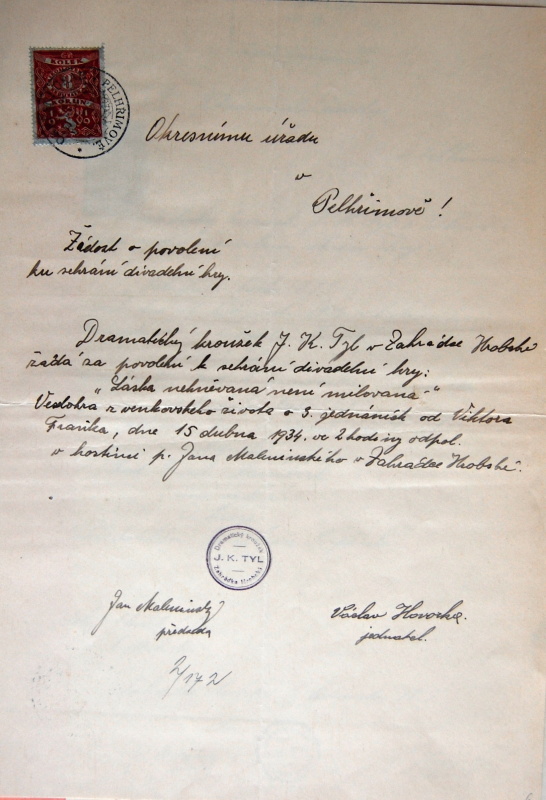 KOLEK
3
KORUN
PELHŘIMOVĚ
Okresnímu úřadu
v
Pelhřimově!
Žádost o povolení
ku sehrání divadelní hry.
Dramatický kroužek J. K. Tyl v Zahrádce Hrobské
žádá za povolení k sehrání divadelní hry:
„Láska nehněvaná není milovaná“
Veselohra z venkovského života o 3. jednáních od Viktora
dne 15 dubna 1934. ve 2 hodiny odpol.
v hostinci p. Jana Maleninského v Zahrádce Hrobské.
Dramatický kroužek
J. K. TYL
Zahrádka Hrobská
Jan Maleninský
předseda
Václav Hovorka.
jednatel.